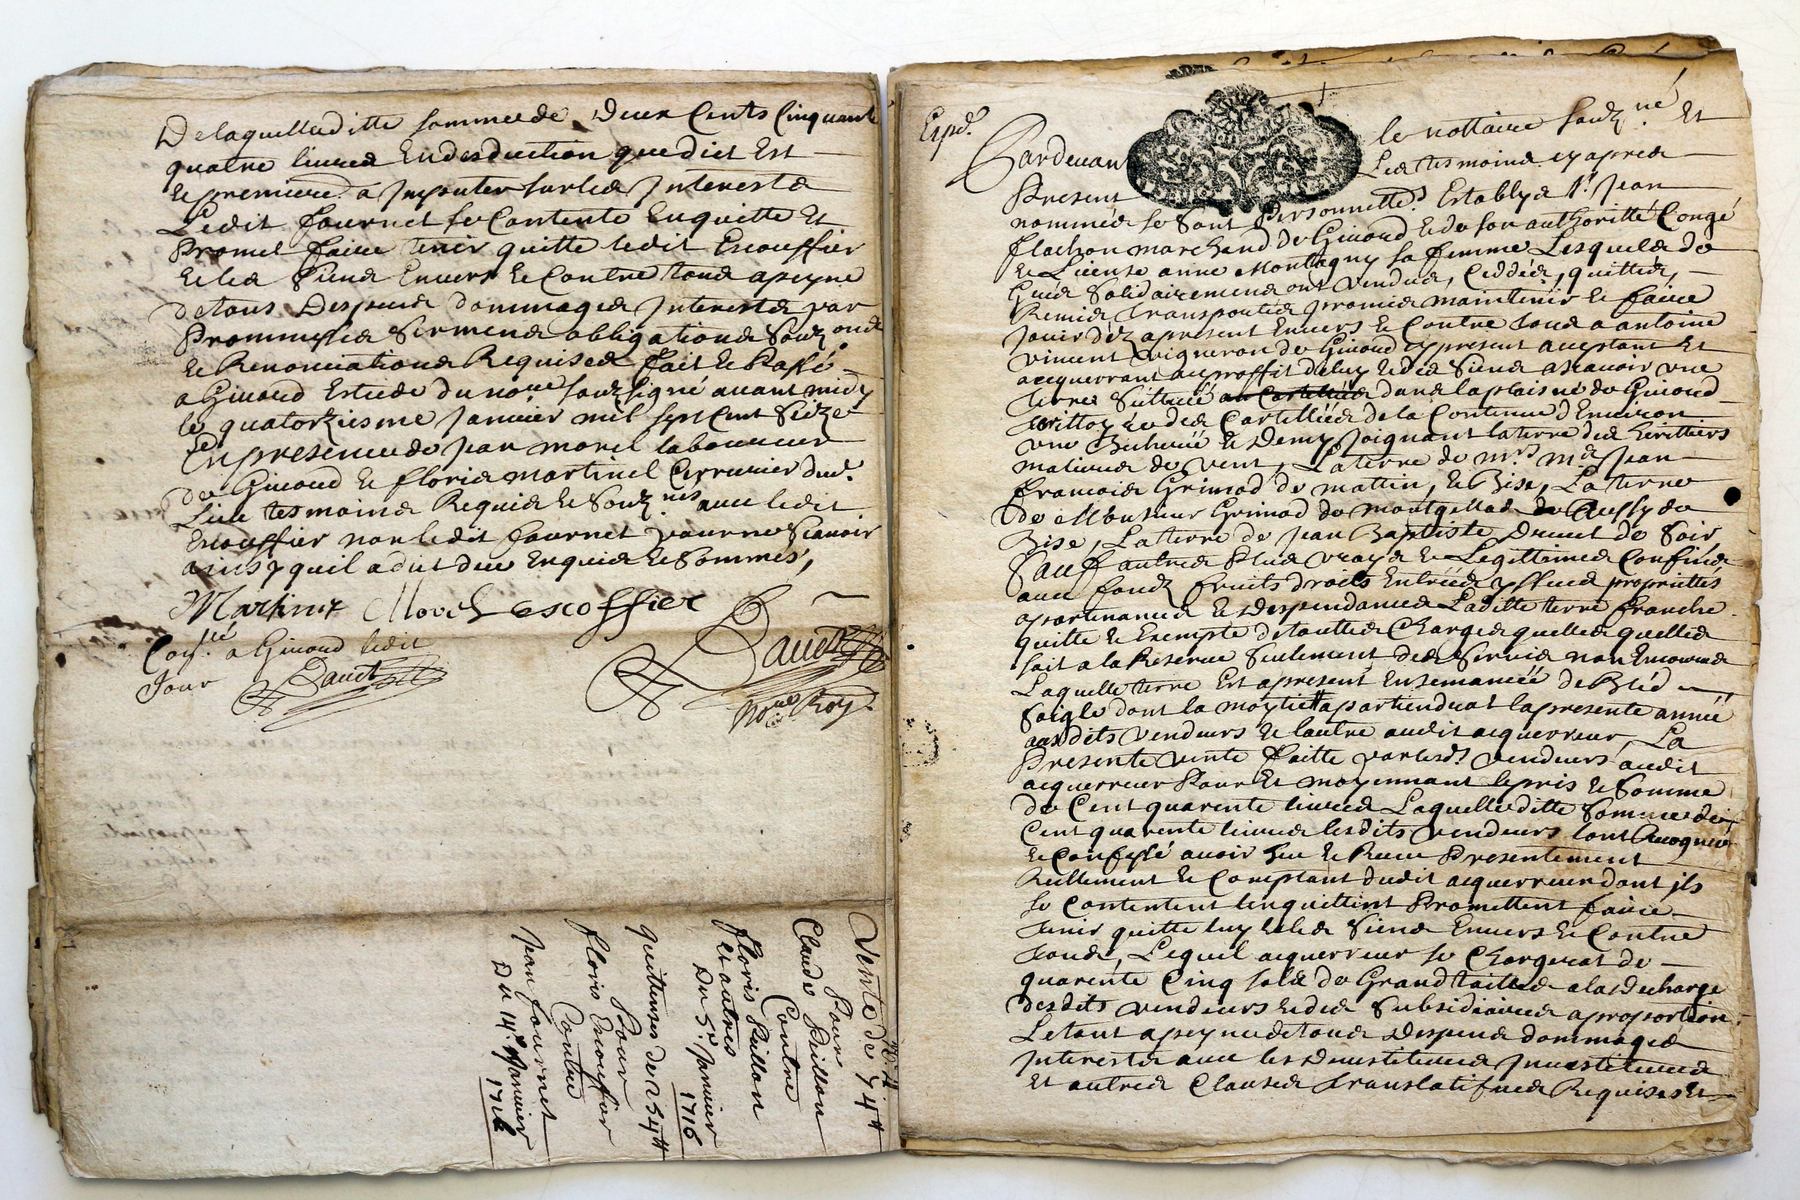 De laquelle ditte somme de Deux Cents Cinquante
quatre livres En desduction que dict Est
et premiere a Imputer sur les Interests
Ledit fournet se Contente En quitte Et
Promet faire tenir quitte ledit Escouffier
et les Siens Envers et Contre tous a peyne
de tous Despens dommages Interests par
Promesses Sermens obligations
et Renonciations Requises fait et Passé
a Givord Estude du no.re soubsigné avant midy
le quatorziesme Janvier mil sept Cent Seize
En presence de Jean morel laboureur
de Givord et floris martinet Serrurier dud.
Lieu tesmoins Requis et Soubz.nes avec ledit
Escouffier non ledit fournet pour ne Scavoir
ainsy quil a dit de ce Enquis et Sommés,
Martinet Morel escoffier
Davet
Con.llé a Givord ledit
Jour Davet
No.re Roy.
Vente de 74 ll
Pour
Claude Peillon
Contre
floris Pullon
Et autres
Du 5.e Janvier
1716
quittense de 254 ll
Pour
floris Escouffier
Contre
Jean fournet
Du 14.e Janvier
1716
Exped.
Pardevant le nottaire soubz.né Et
Present Les tesmoins cy apres
nommés se Sont Personnellem.t Establys S.r Jean
flachon marchand de Givord et de son authoritté Congé
et License anne Montagny sa femme Lesquels de
Grés Solidairemens ont vendus, Ceddés, quittés,
Remis Transportés promis maintenir et faire
Jouir déz apresent Envers et Contre tous a antoine
vincent vigneron de Givord cy present aceptant Et
acquerrant au proffit de luy et des Siens ascavoir une
terre Sittuée dans la plaisne de Givord
territoyre des Cartellées de la Contenue d'Environ
une Bicherée et Demy Joignant la terre des herittiers
mativier de vent, La terre de m.rs Jean
francois Grimod de mattin, et Bise, La terre
de Monsieur Grimod de montgelas Aussy de
Bise, La terre de Jean Baptiste Drivet de Soir
Sauf autres Plus vrays et Legittimes Confins
avec fondz fruits droits Entrées yssues proprietés
apartenances et Despendances Laditte terre franche
quitte et Exempte de touttes Charges quelles quelles
soit a la Reserve Seulement des Servis non Encourus
Laquelle terre Est apresent Ensemancée de Bléd
Seigle dont la moytié apartiendrat la presente année
ausdits vendeurs et lautre audit acquerreur, La
Presente vente faitte par lesd.s vendeurs audit
acquerreur Pour Et moyennant le pris et Somme
de Cent quarente livres Laquelle ditte Somme de
Cent quarente livres lesdits vendeurs lont Recogneu
et Confessé avoir heu et Receu Presentement
Reellement et Comptant dudit acquerreur dont jls
se Contentent len quittent Promettent faire
tenir quitte luy et les Siens Envers et Contre
tous, Lequel acquerreur se Chargerat de
quarente Cinq sols de Grand tailles a la descharge
desdits vendeurs et des Subsidiaires a proportion
Le tout a peyne de tous Despens dommages
Interests avec les Devestitures Investitures
Et autres Clauses Translatifves Requises Et